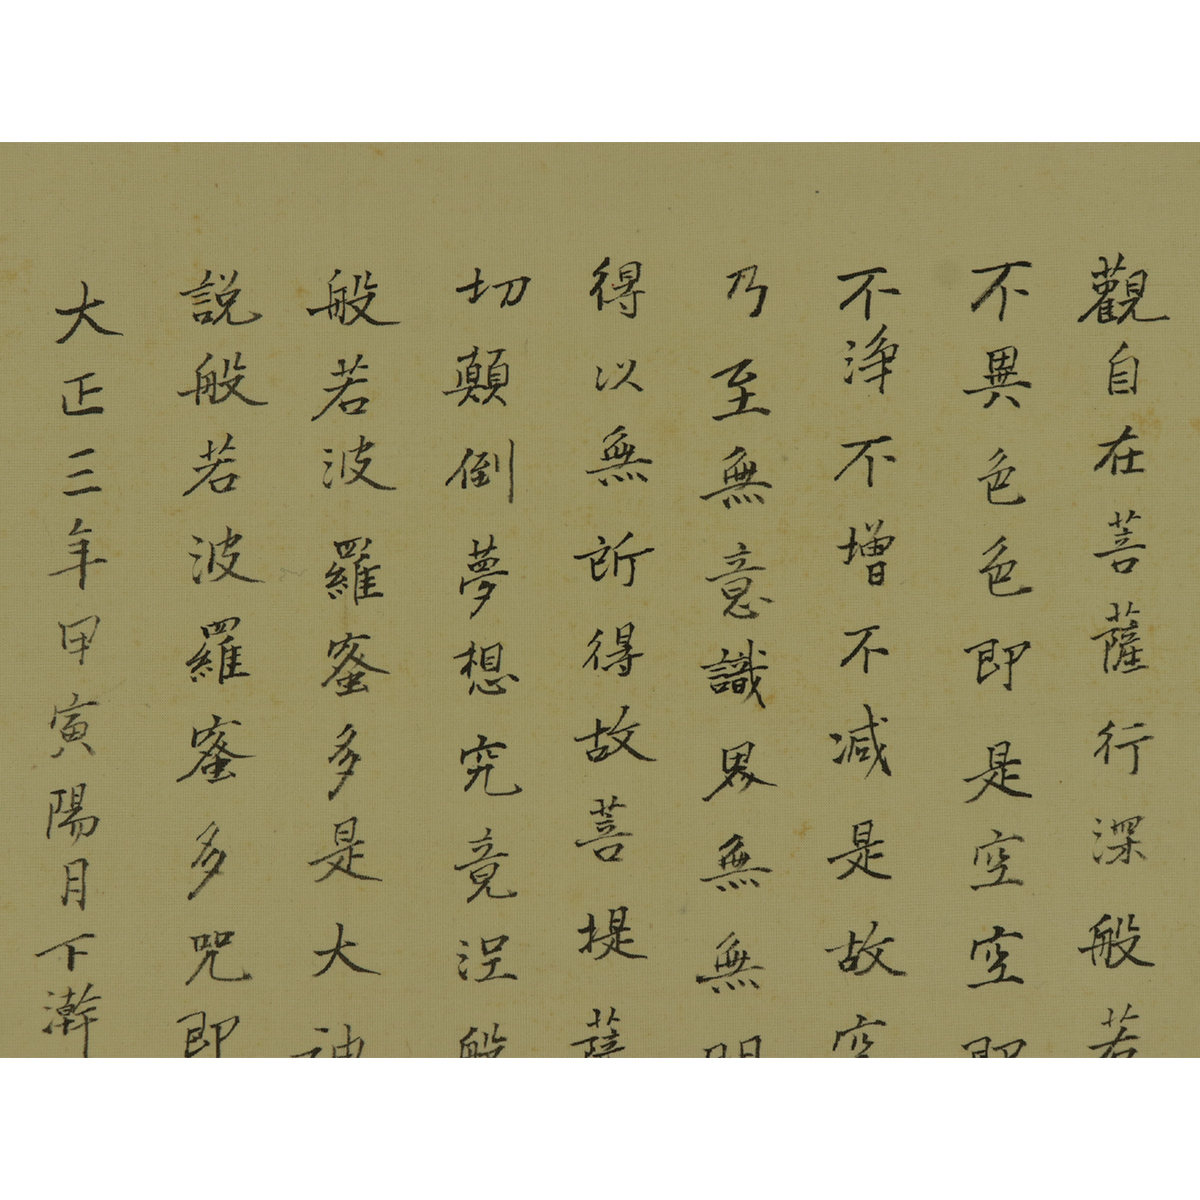 觀自在菩薩行深般若
不異色色即是空空即
不淨不增不減是故空
乃至無意識界無無明
得以無所得故菩提薩
切顛倒夢想究竟涅般
般若波羅蜜多是大神
説般若波羅蜜多咒即
大正三年甲寅陽月下澣